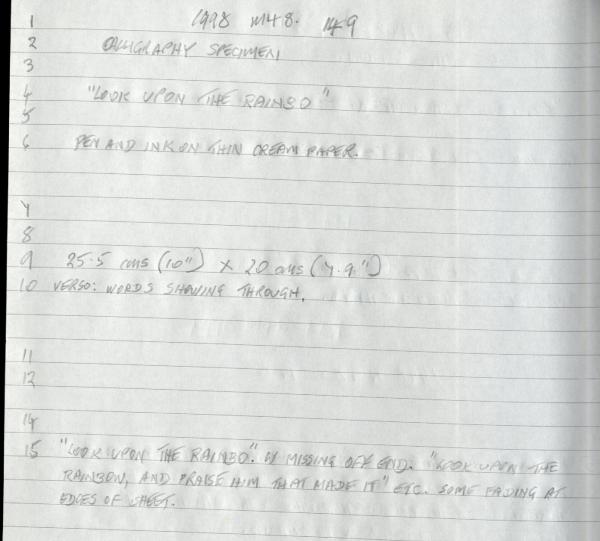 1 1998 M48. 149
2 CALLIGRAPHY SPECIMEN
3
4 "LOOK UPON THE RAINBO"
5
6 PEN AND INK ON THIN CREAM PAPER.
7
8
9 25.5 cms (10") x 20 cms (7.9")
10 VERSO: WORDS SHOWING THROUGH.
11
12
14
15 "LOOK UPON THE RAINBO". W MISSING OFF END. "LOOK UPON THE
RAINBOW, AND PRAISE HIM THAT MADE IT" ETC. SOME FADING AT
EDGES OF SHEET.